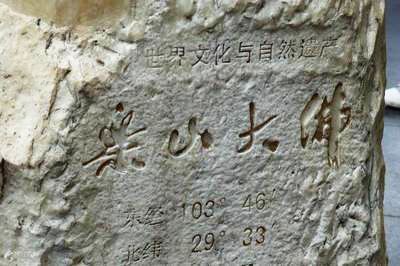 世界文化与自然遗产
乐山大佛
东经 103° 46′
北纬 29° 33′